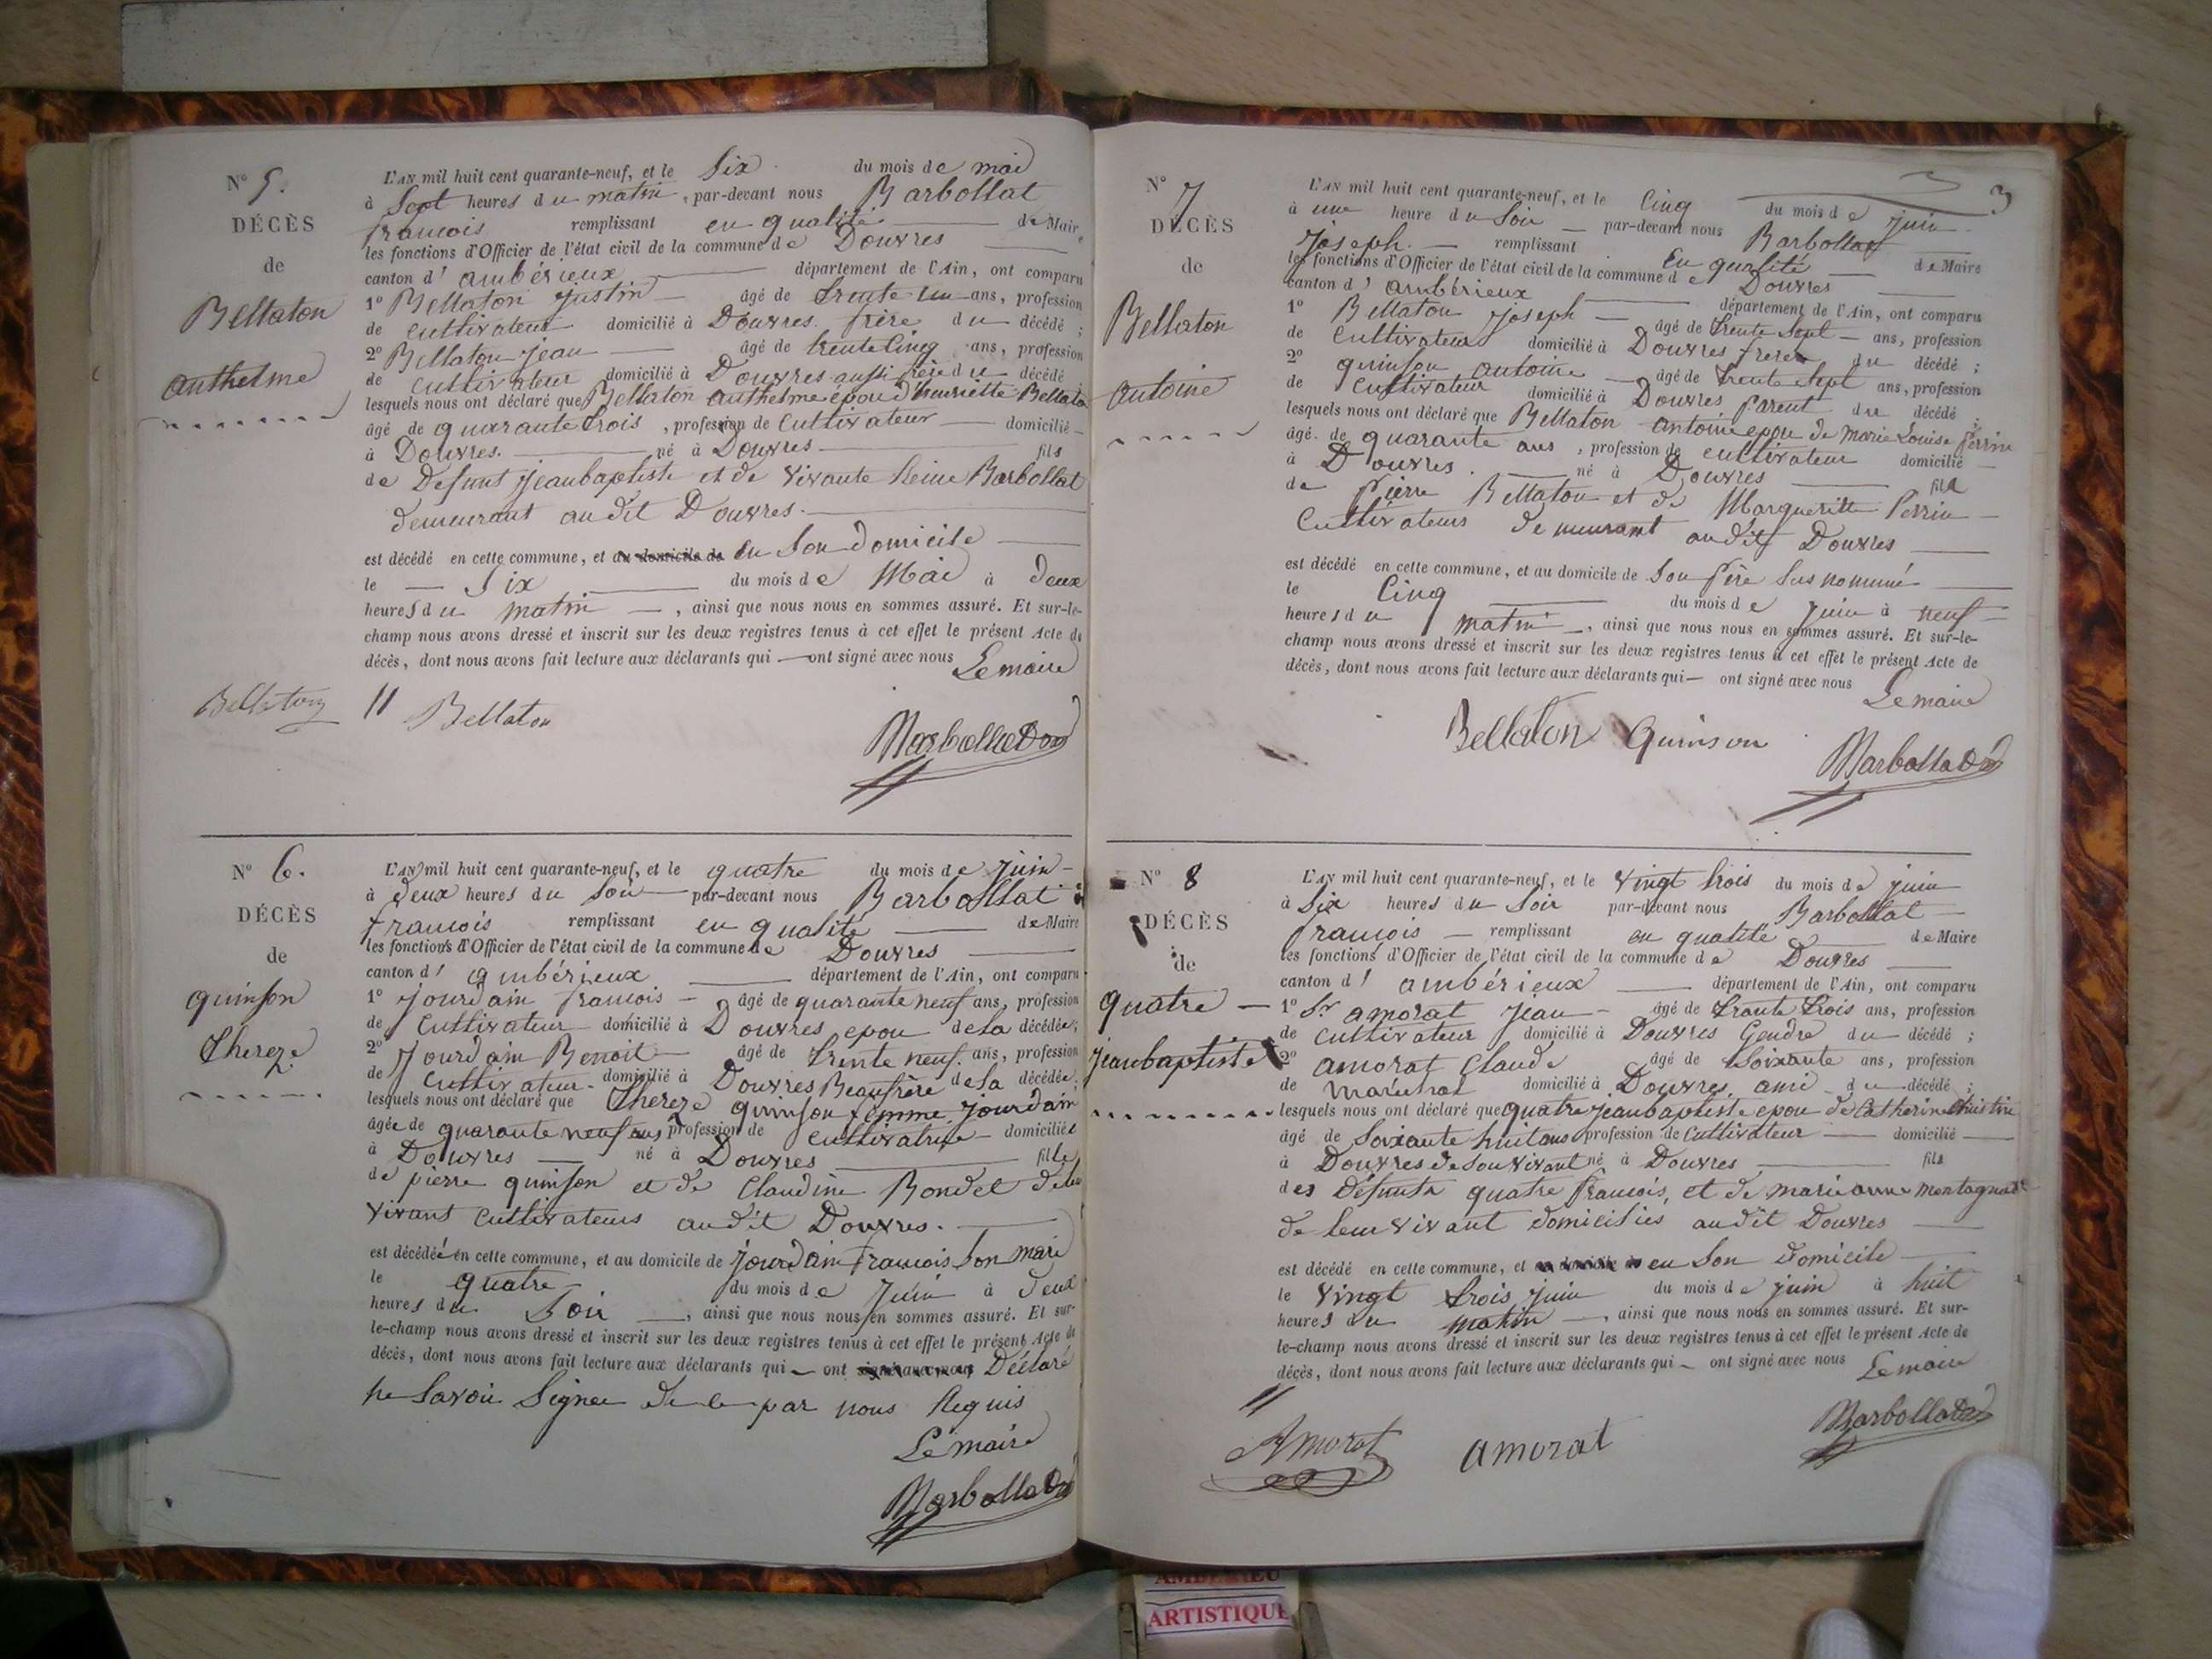 N° 5.
DÉCÈS
de
Bellaton
anthelme
L'AN mil huit cent quarante-neuf, et le Six du mois de mai
à Sept heures du matin, par-devant nous Barbollat
francois remplissant en qualité de Maire
les fonctions d'Officier de l'état civil de la commune de Douvres
canton d' ambérieux département de l'Ain, ont comparu
1° Bellaton justin âgé de trente un ans, profession
de cultivateur domicilié à Douvres. frère du décédé ;
2° Bellaton jean âgé de trente Cinq ans, profession
de cultivateur domicilié à Douvres aussi frère du décédé ;
lesquels nous ont déclaré que Bellaton anthelme épou d'henriette Bellato
âgé de quarante trois, profession de Cultivateur domicilié
à Douvres. né à Douvres fils
de Defunt jeanbaptiste et de vivante Reine Barbollat
demeurant audit Douvres.
est décédé en cette commune, et au domicile de en Son domicile
le Six du mois de Mai à deux
heures du matin, ainsi que nous nous en sommes assuré. Et sur-le-
champ nous avons dressé et inscrit sur les deux registres tenus à cet effet le présent Acte de
décès, dont nous avons fait lecture aux déclarants qui ont signé avec nous Le maire
Bellaton Bellaton
Barbollat
N° 6.
DÉCÈS
de
quinson
Thereze
L'AN mil huit cent quarante-neuf, et le quatre du mois de Juin
à deux heures du Soir par-devant nous Barbollat
francois remplissant en qualité de Maire
les fonctions d'Officier de l'état civil de la commune de Douvres
canton d' ambérieux département de l'Ain, ont comparu
1° jourdain francois âgé de quarante neuf ans, profession
de Cultivateur domicilié à Douvres epou dela décédée;
2° Jourdain Benoit âgé de trente neuf. ans, profession
de Cultivateur domicilié à Douvres Beaufrère dela décédée;
lesquels nous ont déclaré que Thereze quinson femme jourdain
âgée de quarante neuf ans profession de cultivatrice domiciliée
à Douvres né à Douvres fille
de pierre quinson et de Claudine Bondet de leu
vivant Cultivateurs audit Douvres.
est décédée en cette commune, et au domicile de jourdain francois Son mari
le quatre du mois de Juin à deux
heures du Soir, ainsi que nous nous en sommes assuré. Et sur-
le-champ nous avons dressé et inscrit sur les deux registres tenus à cet effet le présent Acte de
décès, dont nous avons fait lecture aux déclarants qui ont signé avec nous Déclaré
ne Savoir Signer de ce par nous Requis
Le maire
Barbollat
3
N° 7
DÉCÈS
de
Bellaton
antoine
L'AN mil huit cent quarante-neuf, et le Cinq du mois de juin
à une heure du Soir par-devant nous Barbollat
Joseph. remplissant En qualité de Maire
les fonctions d'Officier de l'état civil de la commune de Douvres
canton d' ambérieux département de l'Ain, ont comparu
1° Bellaton Joseph âgé de trente Sept ans, profession
de Cultivateur domicilié à Douvres frere du décédé ;
2° quinson antoine âgé de trente Sept ans, profession
de Cultivateur domicilié à Douvres parent du décédé ;
lesquels nous ont déclaré que Bellaton antoine epou de Marie Louise Perrin
âgé de quarante ans, profession de cultivateur domicilié
à Douvres. né à Douvres fils
de pierre Bellaton et de Margueritte Perrin
Cultivateurs demeurant audit Douvres
est décédé en cette commune, et au domicile de Son père Sus nommé
le Cinq du mois de Juin à neuf
heures du matin, ainsi que nous nous en sommes assuré. Et sur-le-
champ nous avons dressé et inscrit sur les deux registres tenus à cet effet le présent Acte de
décès, dont nous avons fait lecture aux déclarants qui ont signé avec nous
Le maire
Bellaton Quinson
Barbollat
N° 8
DÉCÈS
de
quatre
jeanbaptiste
L'AN mil huit cent quarante-neuf, et le vingt trois du mois de juin
à Six heures du Soir par-devant nous Barbollat
francois remplissant en qualité de Maire
les fonctions d'Officier de l'état civil de la commune de Douvres
canton d' ambérieux département de l'Ain, ont comparu
1° Sr amorat Jean âgé de trante trois ans, profession
de cultivateur domicilié à Douvres Gendre du décédé ;
2° amorat Claude âgé de Soixante ans, profession
de maréchal domicilié à Douvres, ami du décédé ;
lesquels nous ont déclaré que quatre jeanbaptiste epou de Catherine Christin
âgé de Soixante huit ans profession de Cultivateur domicilié
à Douvres de Son vivant né à Douvres fils
des Défunts quatre francois, et de marie anne montagnat
de leur vivant domiciliés audit Douvres
est décédé en cette commune, et au domicile de en Son domicile
le vingt trois juin du mois de juin à huit
heures du matin, ainsi que nous nous en sommes assuré. Et sur-
le-champ nous avons dressé et inscrit sur les deux registres tenus à cet effet le présent Acte de
décès, dont nous avons fait lecture aux déclarants qui ont signé avec nous Le maire
Amorat amorat
Barbollat
AMBERIEU
ARTISTIQUE